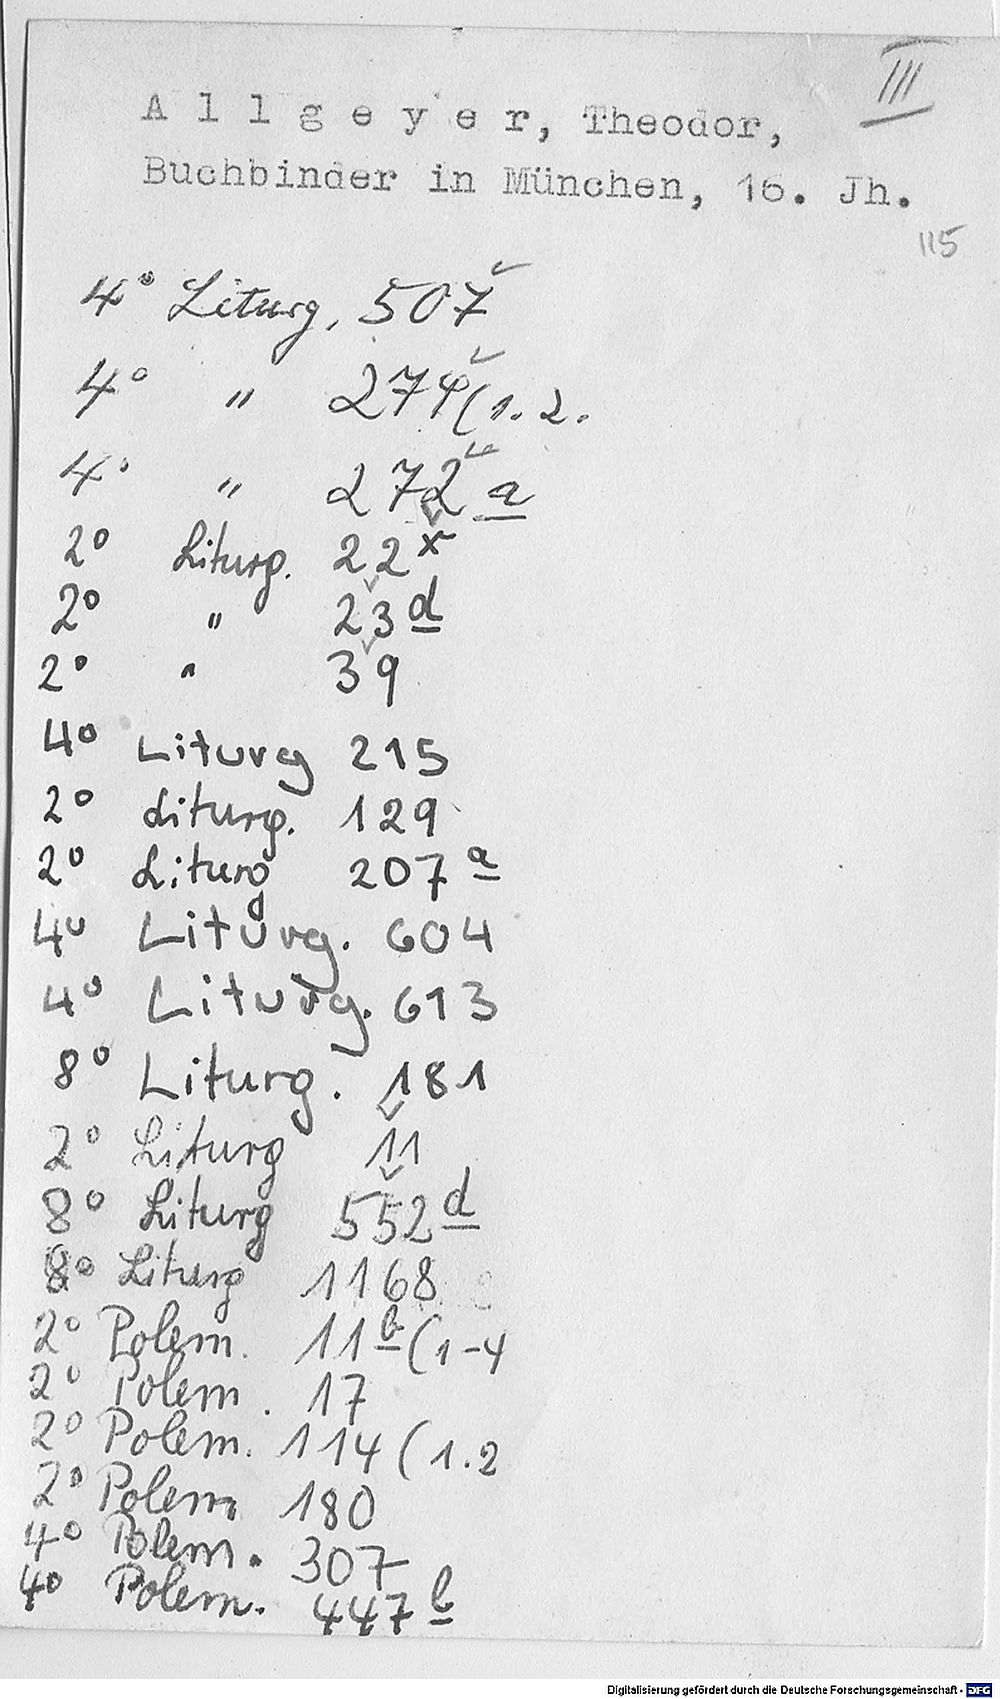 III
A l l g e y e r, Theodor,
Buchbinder in München, 16. Jh.
115
4° Liturg. 507
4° " 274(1.2.
4° " 272 a
2° Liturg. 22 x
2° " 23 d
2° " 39
4° Liturg 215
2° Liturg. 129
2° Liturg 207 a
4° Liturg. 604
4° Liturg. 613
8° Liturg. 181
2° Liturg 11
8° Liturg 552 d
8° Liturg 1168
2° Polem. 11 b (1-4
2° Polem. 17
2° Polem. 114 (1.2
2° Polem. 180
4° Polem. 307
4° Polem. 447 b
Digitalisierung gefördert durch die Deutsche Forschungsgemeinschaft - DFG